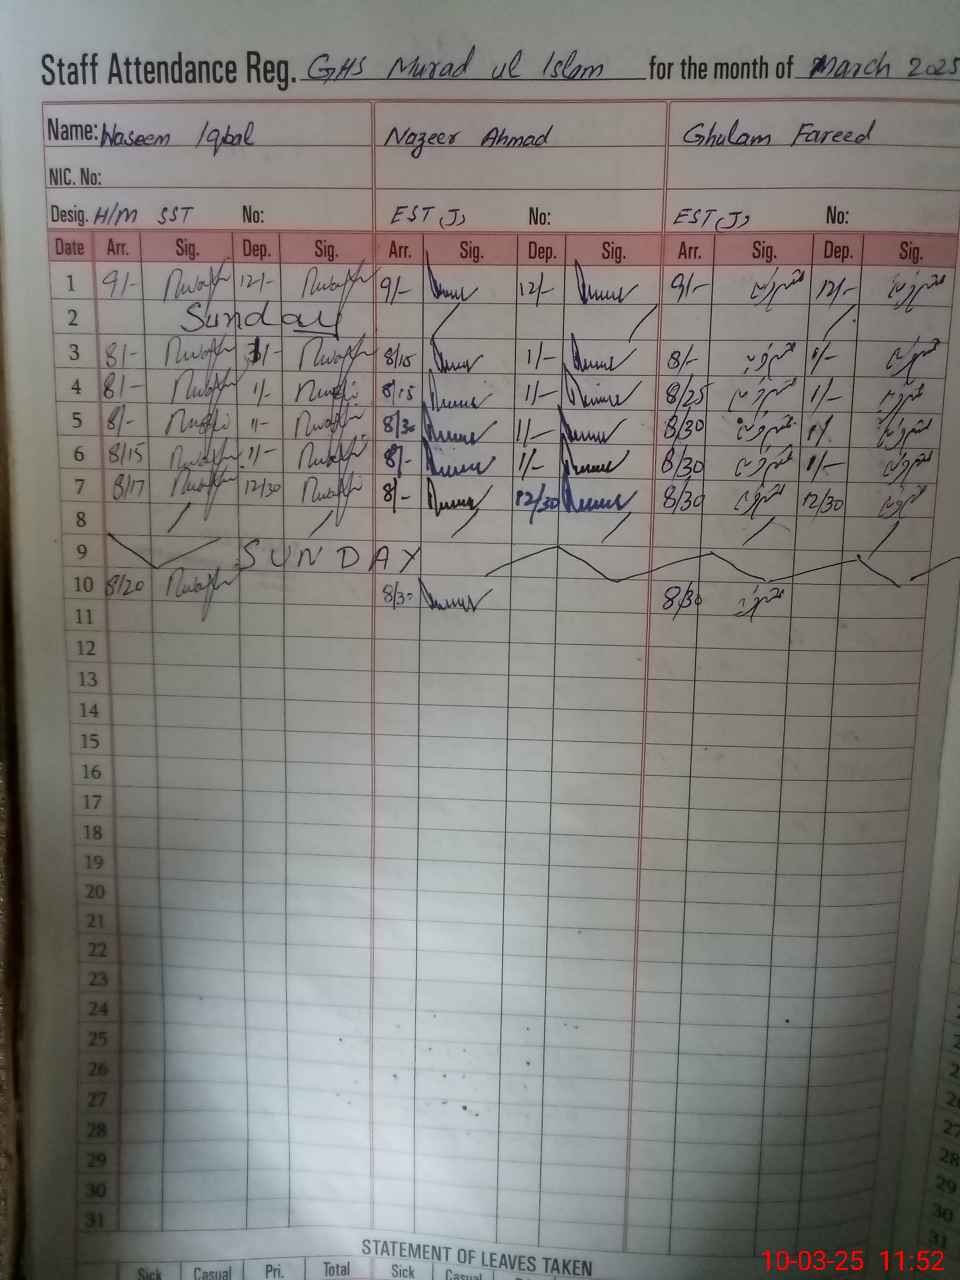 Staff Attendance Reg. GHS Murad ul Islam for the month of March 2025
Name: Waseem Iqbal Nazeer Ahmad Ghulam Fareed
NIC. No:
Desig. H/M SST No: EST (J) No: EST (J) No:
Date Arr. Sig. Dep. Sig. Arr. Sig. Dep. Sig. Arr. Sig. Dep. Sig.
1 9/- 12/- 9/- 12/- 9/- 12/-
2 Sunday
3 8/- 1/- 8/15 1/- 8/- 1/-
4 8/- 1/- 8/15 1/- 8/25 1/-
5 8/- 1/- 8/30 1/- 8/30 1/
6 8/15 1/- 8/- 1/- 8/30 1/-
7 8/17 12/30 8/- 12/30 8/30 12/30
8
9 SUNDAY
10 8/20 8/30 8/30
11
12
13
14
15
16
17
18
19
20
21
22
23
24
25
26
27
28
29
30
31
STATEMENT OF LEAVES TAKEN
Sick Casual Pri. Total Sick Casual
10-03-25 11:52